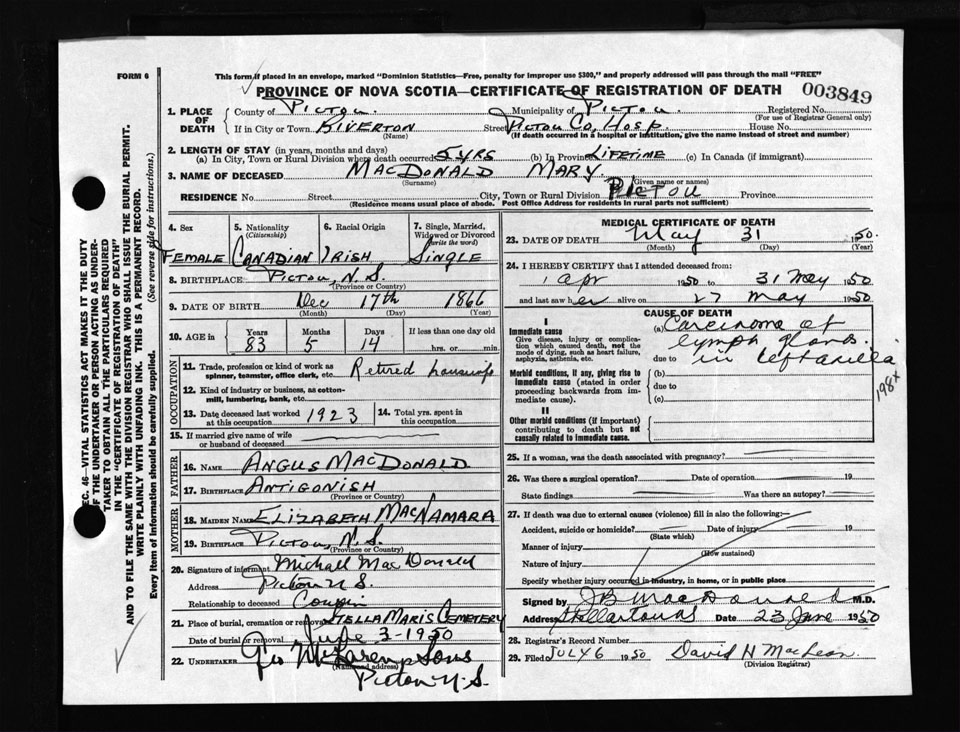 FORM 6
This form if placed in an envelope, marked "Dominion Statistics—Free, penalty for improper use $300," and properly addressed will pass through the mail "FREE"
PROVINCE OF NOVA SCOTIA—CERTIFICATE OF REGISTRATION OF DEATH
003849
1. PLACE OF DEATH
County of Pictou. Municipality of Pictou. Registered No.
(For use of Registrar General only)
If in City or Town Riverton Street Pictou Co. Hosp. House No.
(Name) (If death occurred in a hospital or institution, give the name instead of street and number)
2. LENGTH OF STAY (in years, months and days)
(a) In City, Town or Rural Division where death occurred 5 yrs (b) In Province Lifetime (c) In Canada (if immigrant)
3. NAME OF DECEASED MacDonald Mary
(Surname) (Given name or names)
RESIDENCE No. Street City, Town or Rural Division Pictou Province
(Residence means usual place of abode. Post Office Address for residents in rural parts not sufficient)
4. Sex Female
5. Nationality (Citizenship) Canadian
6. Racial Origin Irish
7. Single, Married, Widowed or Divorced (write the word) Single
8. BIRTHPLACE Pictou, N.S.
(Province or Country)
9. DATE OF BIRTH Dec 17th 1866
(Month) (Day) (Year)
10. AGE in Years Months Days If less than one day old
83 5 14 hrs. or min.
OCCUPATION
11. Trade, profession or kind of work as spinner, teamster, office clerk, etc. Retired housewife
12. Kind of industry or business, as cotton-mill, lumbering, bank, etc.
13. Date deceased last worked at this occupation 1923
14. Total yrs. spent in this occupation
15. If married give name of wife or husband of deceased
FATHER
16. NAME Angus MacDonald
17. BIRTHPLACE Antigonish
(Province or Country)
MOTHER
18. MAIDEN NAME Elizabeth MacNamara
19. BIRTHPLACE Pictou, N.S.
(Province or Country)
20. Signature of informant Michall MacDonald
Address Pictou N.S.
Relationship to deceased Cousin
21. Place of burial, cremation or removal Stella Maris Cemetery
Date of burial or removal June 3-1950
22. UNDERTAKER Geo McLaren & Sons
(Name and address)
Pictou N.S.
MEDICAL CERTIFICATE OF DEATH
23. DATE OF DEATH May 31 1950.
(Month) (Day) (Year)
24. I HEREBY CERTIFY that I attended deceased from:
1 Apr 1950 to 31 May 1950
and last saw her alive on 27 May 1950
CAUSE OF DEATH
I
Immediate cause
Give disease, injury or complication which caused death, not the mode of dying, such as heart failure, asphyxia, asthenia, etc.
(a) Carcinoma of lymph glands.
due to in left axilla
Morbid conditions, if any, giving rise to immediate cause (stated in order proceeding backwards from immediate cause).
(b)
due to
(c)
198x
II
Other morbid conditions (if important) contributing to death but not causally related to immediate cause.
25. If a woman, was the death associated with pregnancy?
26. Was there a surgical operation? Date of operation 19
State findings Was there an autopsy?
27. If death was due to external causes (violence) fill in also the following:—
Accident, suicide or homicide? Date of injury 19
(State which)
Manner of injury
(How sustained)
Nature of injury
Specify whether injury occurred in industry, in home, or in public place
Signed by J B MacDonald M.D.
Address Stellarton NS Date 23 June 1950
28. Registrar's Record Number
29. Filed July 6 1950 David H MacLean
(Division Registrar)
SEC. 46—VITAL STATISTICS ACT MAKES IT THE DUTY
OF THE UNDERTAKER OR PERSON ACTING AS UNDER-
TAKER TO OBTAIN ALL THE PARTICULARS REQUIRED
IN THE "CERTIFICATE OF REGISTRATION OF DEATH"
AND TO FILE THE SAME WITH THE DIVISION REGISTRAR WHO SHALL ISSUE THE BURIAL PERMIT.
WRITE PLAINLY WITH UNFADING INK. THIS IS A PERMANENT RECORD.
Every item of information should be carefully supplied. (See reverse side for instructions.)